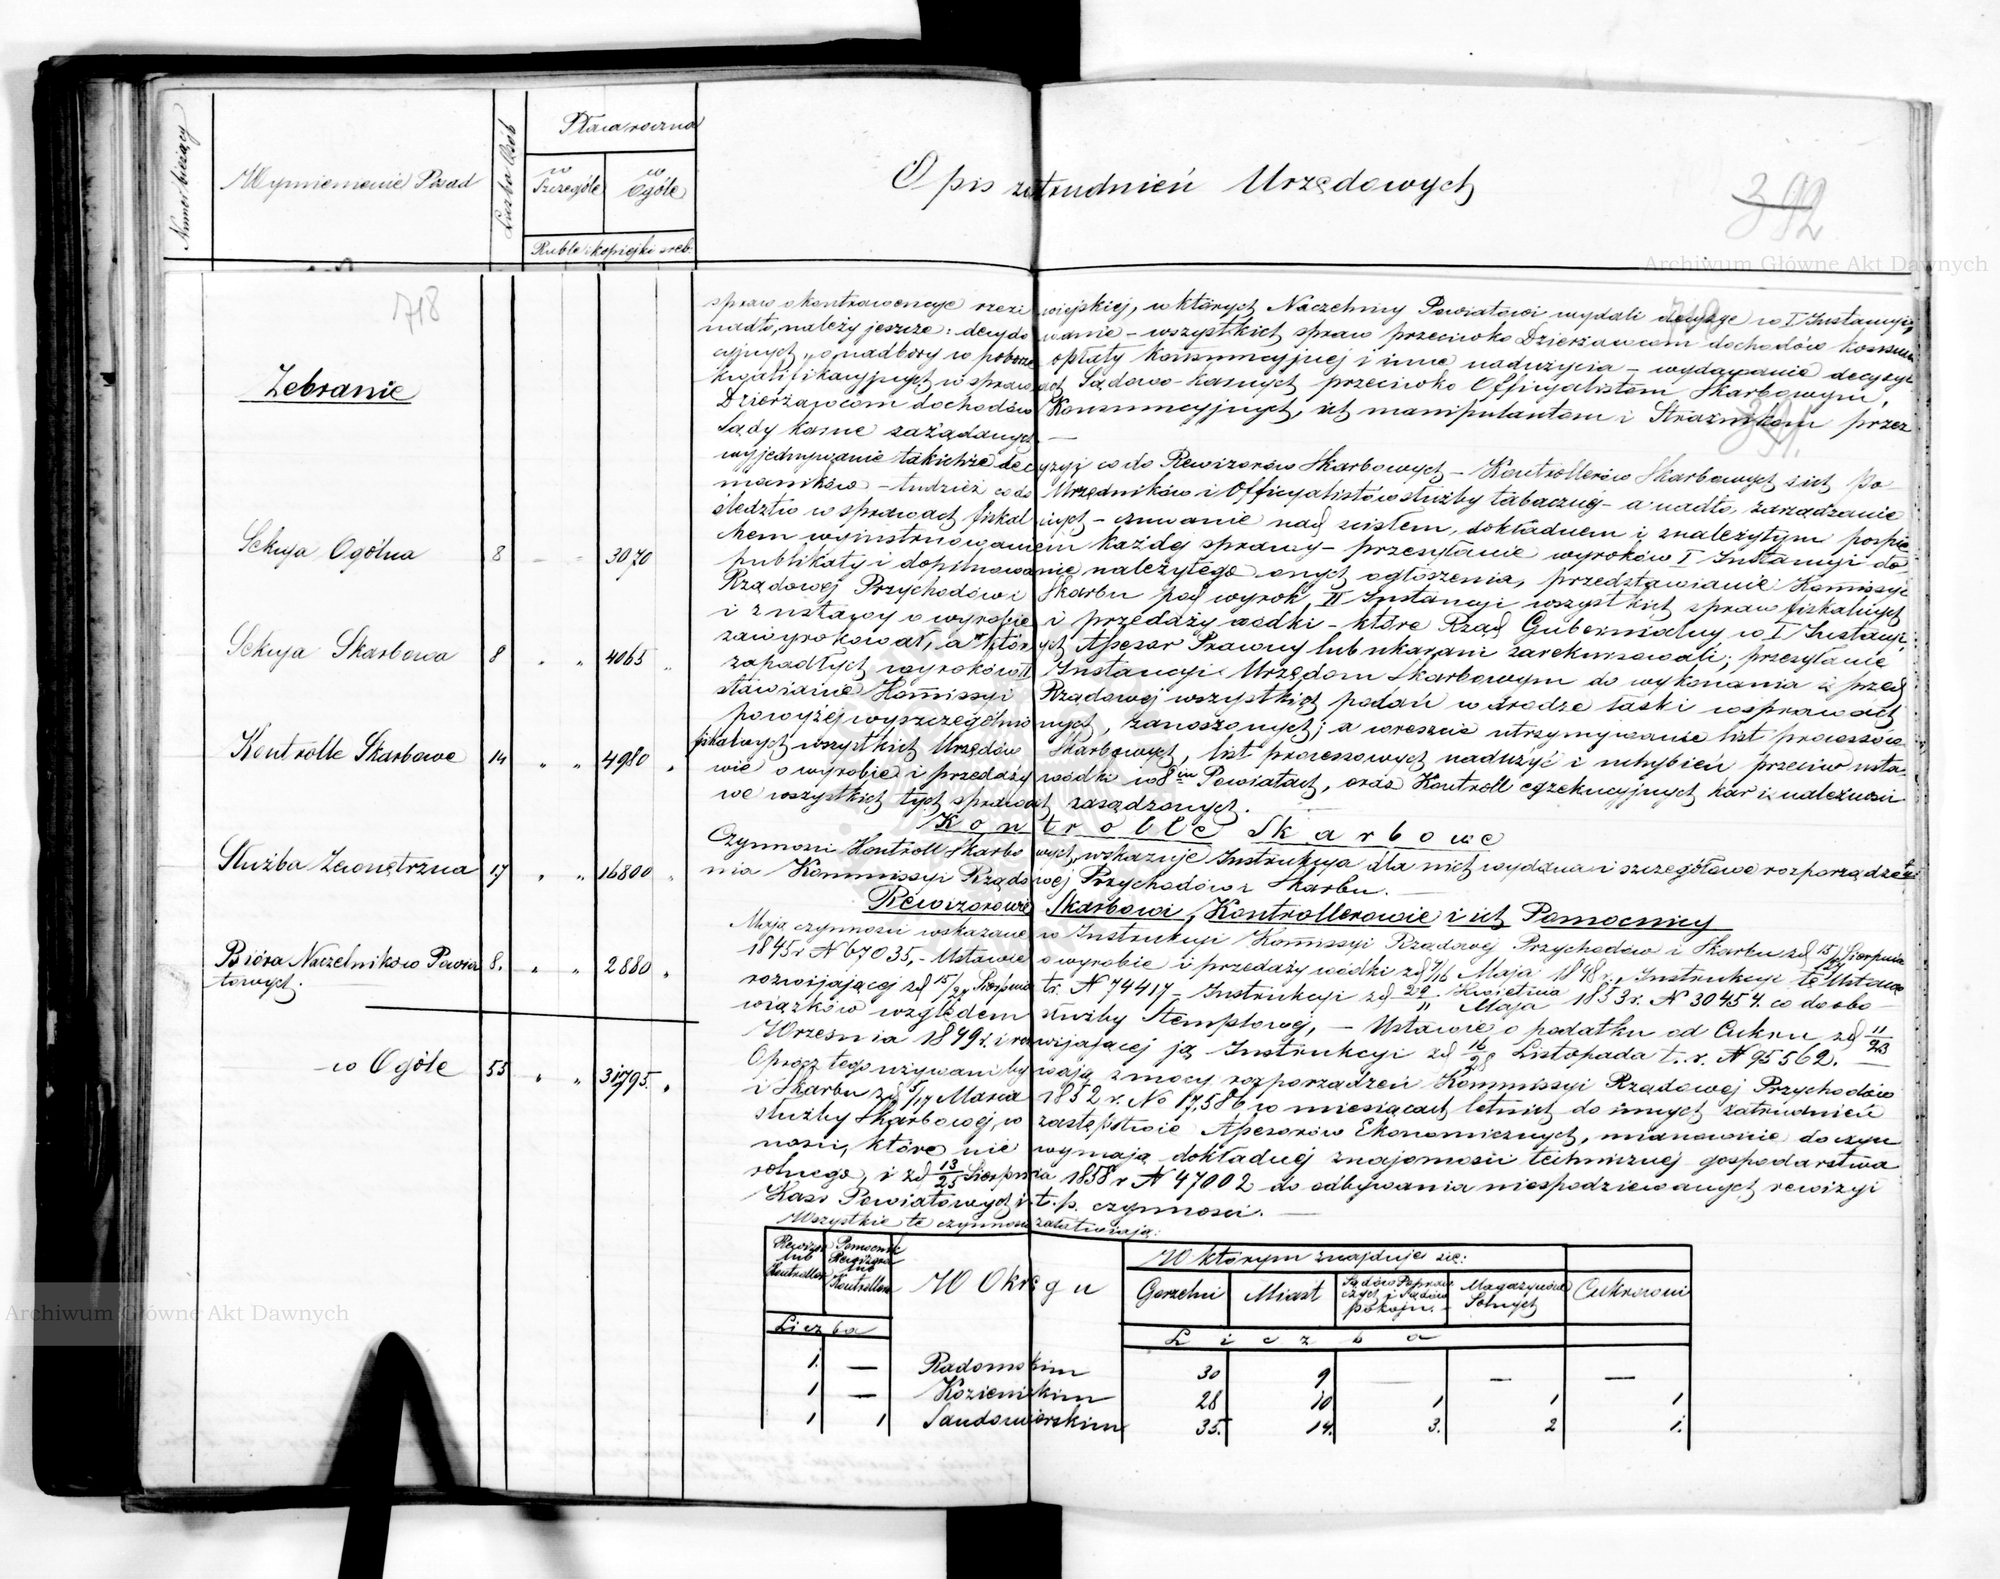 Numer bieżący
Wymienienie Posad
Liczba Osób
Płaca roczna
w Szczególe
w Ogóle
Ruble i kopiejki sreb.
Opis zatrudnień Urzędowych
392
718
Zebranie
Sekcya Ogólna 8 - - 3070
Sekcya Skarbowa 8 " " 4065 "
Kontrolle Skarbowe 14 " " 4980 "
Służba Zewnętrzna 17 " " 16800 "
Bióra Naczelników Powia 8. " " 2880 "
towych.
w Ogóle 55 " " 31795. "
spraw o kontrawencye rzeziwiejskiej, w których Naczelnicy Powiatowi wydali decyzye w I Instancyi,
nadto, należy jeszcze: decydowanie - wszystkich spraw przeciwko Dzierżawcom dochodów konsum
cyjnych, o nadbory w poborze opłaty konsumcyjnej i inne nadużycia - wydawanie decyzyi
kwalifikacyjnych w sprawach Sądowo-karnych przeciwko Officyalistom Skarbowym,
Dzierżawcom dochodów Konsumcyjnych, ich manipulantom i Strażnikom przez
391.
Sądy karne zażądanych —
wyjednywanie takichże decyzyi co do Rewizorów Skarbowych - Kontrollerów Skarbowych i ich Po-
mocników - tudzież co do Urzędników i Officyalistów służby tabacznej - a nadto, zarządzanie
śledztw w sprawach fiskalnych - czuwanie nad ścisłem, dokładnem i należytym pospie
chem wyinstruowaniem każdej sprawy - przesyłanie wyroków I Instancyi do
publikaty i dopilnowanie należytego onych ogłoszenia, przedstawianie Kommissyi
Rządowej Przychodów i Skarbu pod wyrok II Instancyi wszystkich spraw fiskalnych
i z ustawy o wyrobie i przedaży wódki - które Rząd Gubernialny w I Instancyi
zawyrokował, a których Assesor Prawny lub ukarani zarekursowali; przesyłanie
zapadłych wyroków II Instancyi Urzędom Skarbowym do wykonania i przed
stawianie Kommissyi Rządowej wszystkich podań w drodze łaski w sprawach
powyżej wyszczególnionych, zanoszonych; a wreszcie utrzymywanie list processów
fiskalnych wszystkich Urzędów Skarbowych, list processowych nadużyć i uchybień przeciw usta
wie o wyrobie i przedaży wódki w 8iu Powiatach, oraz Kontroll egzekucyjnych kar i należnoś
we wszystkich tych sprawach zasądzonych.
Kontrolle Skarbowe
Czynności Kontroll Skarbowych, wskazuje Instrukcya dla nich wydana i szczegółowe rozporządze
nia Kommissyi Rządowej Przychodów i Skarbu. —
Rewizorowie Skarbowi, Kontrollerowie i ich Pomocnicy
Mają czynności wskazane w Instrukcyi Kommissyi Rządowej Przychodów i Skarbu z d. 15/27 Sierpnia
1845 r N 67035, - Ustawie o wyrobie i przedaży wódki z d. 4/16 Maja 1848 r., Instrukcyi tę Ustawę
rozwijającej z d. 15/27 Sierpnia t.r. N 74417 - Instrukcyi z d. 29 Kwietnia/11 Maja 1853 r. N 30454. co do obo-
wiązków względem służby Stemplowej, - Ustawie o podatku od Cukru z d. 11/23
Września 1849 r. i rozwijającej ją Instrukcyi z d. 16/28 Listopada t. r. N 95562. —
Oprócz tego używani bywają z mocy rozporządzeń Kommissyi Rządowej Przychodów
i Skarbu z d. 5/17 Marca 1852 r. No 17,586 w miesiącach letnich do innych zatrudnień
służby Skarbowej, w zastępstwie Assesorów Ekonomicznych, mianowicie do czyn
ności, które nie wymają dokładnej znajomości technicznej gospodarstwa
rolnego, i z d. 13/25 Sierpnia 1858 r N 47002 do odbywania niespodziewanych rewizyi
Kass Powiatowych i. t. p. czynności. —
Wszystkie te czynności załatwiają:
Rewizor lub Kontroller
Pomocnik Rewizora lub Kontrollera
W Okręgu
W którym znajduje się:
Gorzelni
Miast
Sądów Popraw czych i Sądów pokoju. -
Magazynów Solnych
Cukrowni
Liczba
Liczba
1. — Radomskim 30 9 — — —
1 — Kozienickim 28 10 1 1 1
1 1 Sandomierskim 35. 14. 3. 2 1.
Archiwum Główne Akt Dawnych
Archiwum Główne Akt Dawnych